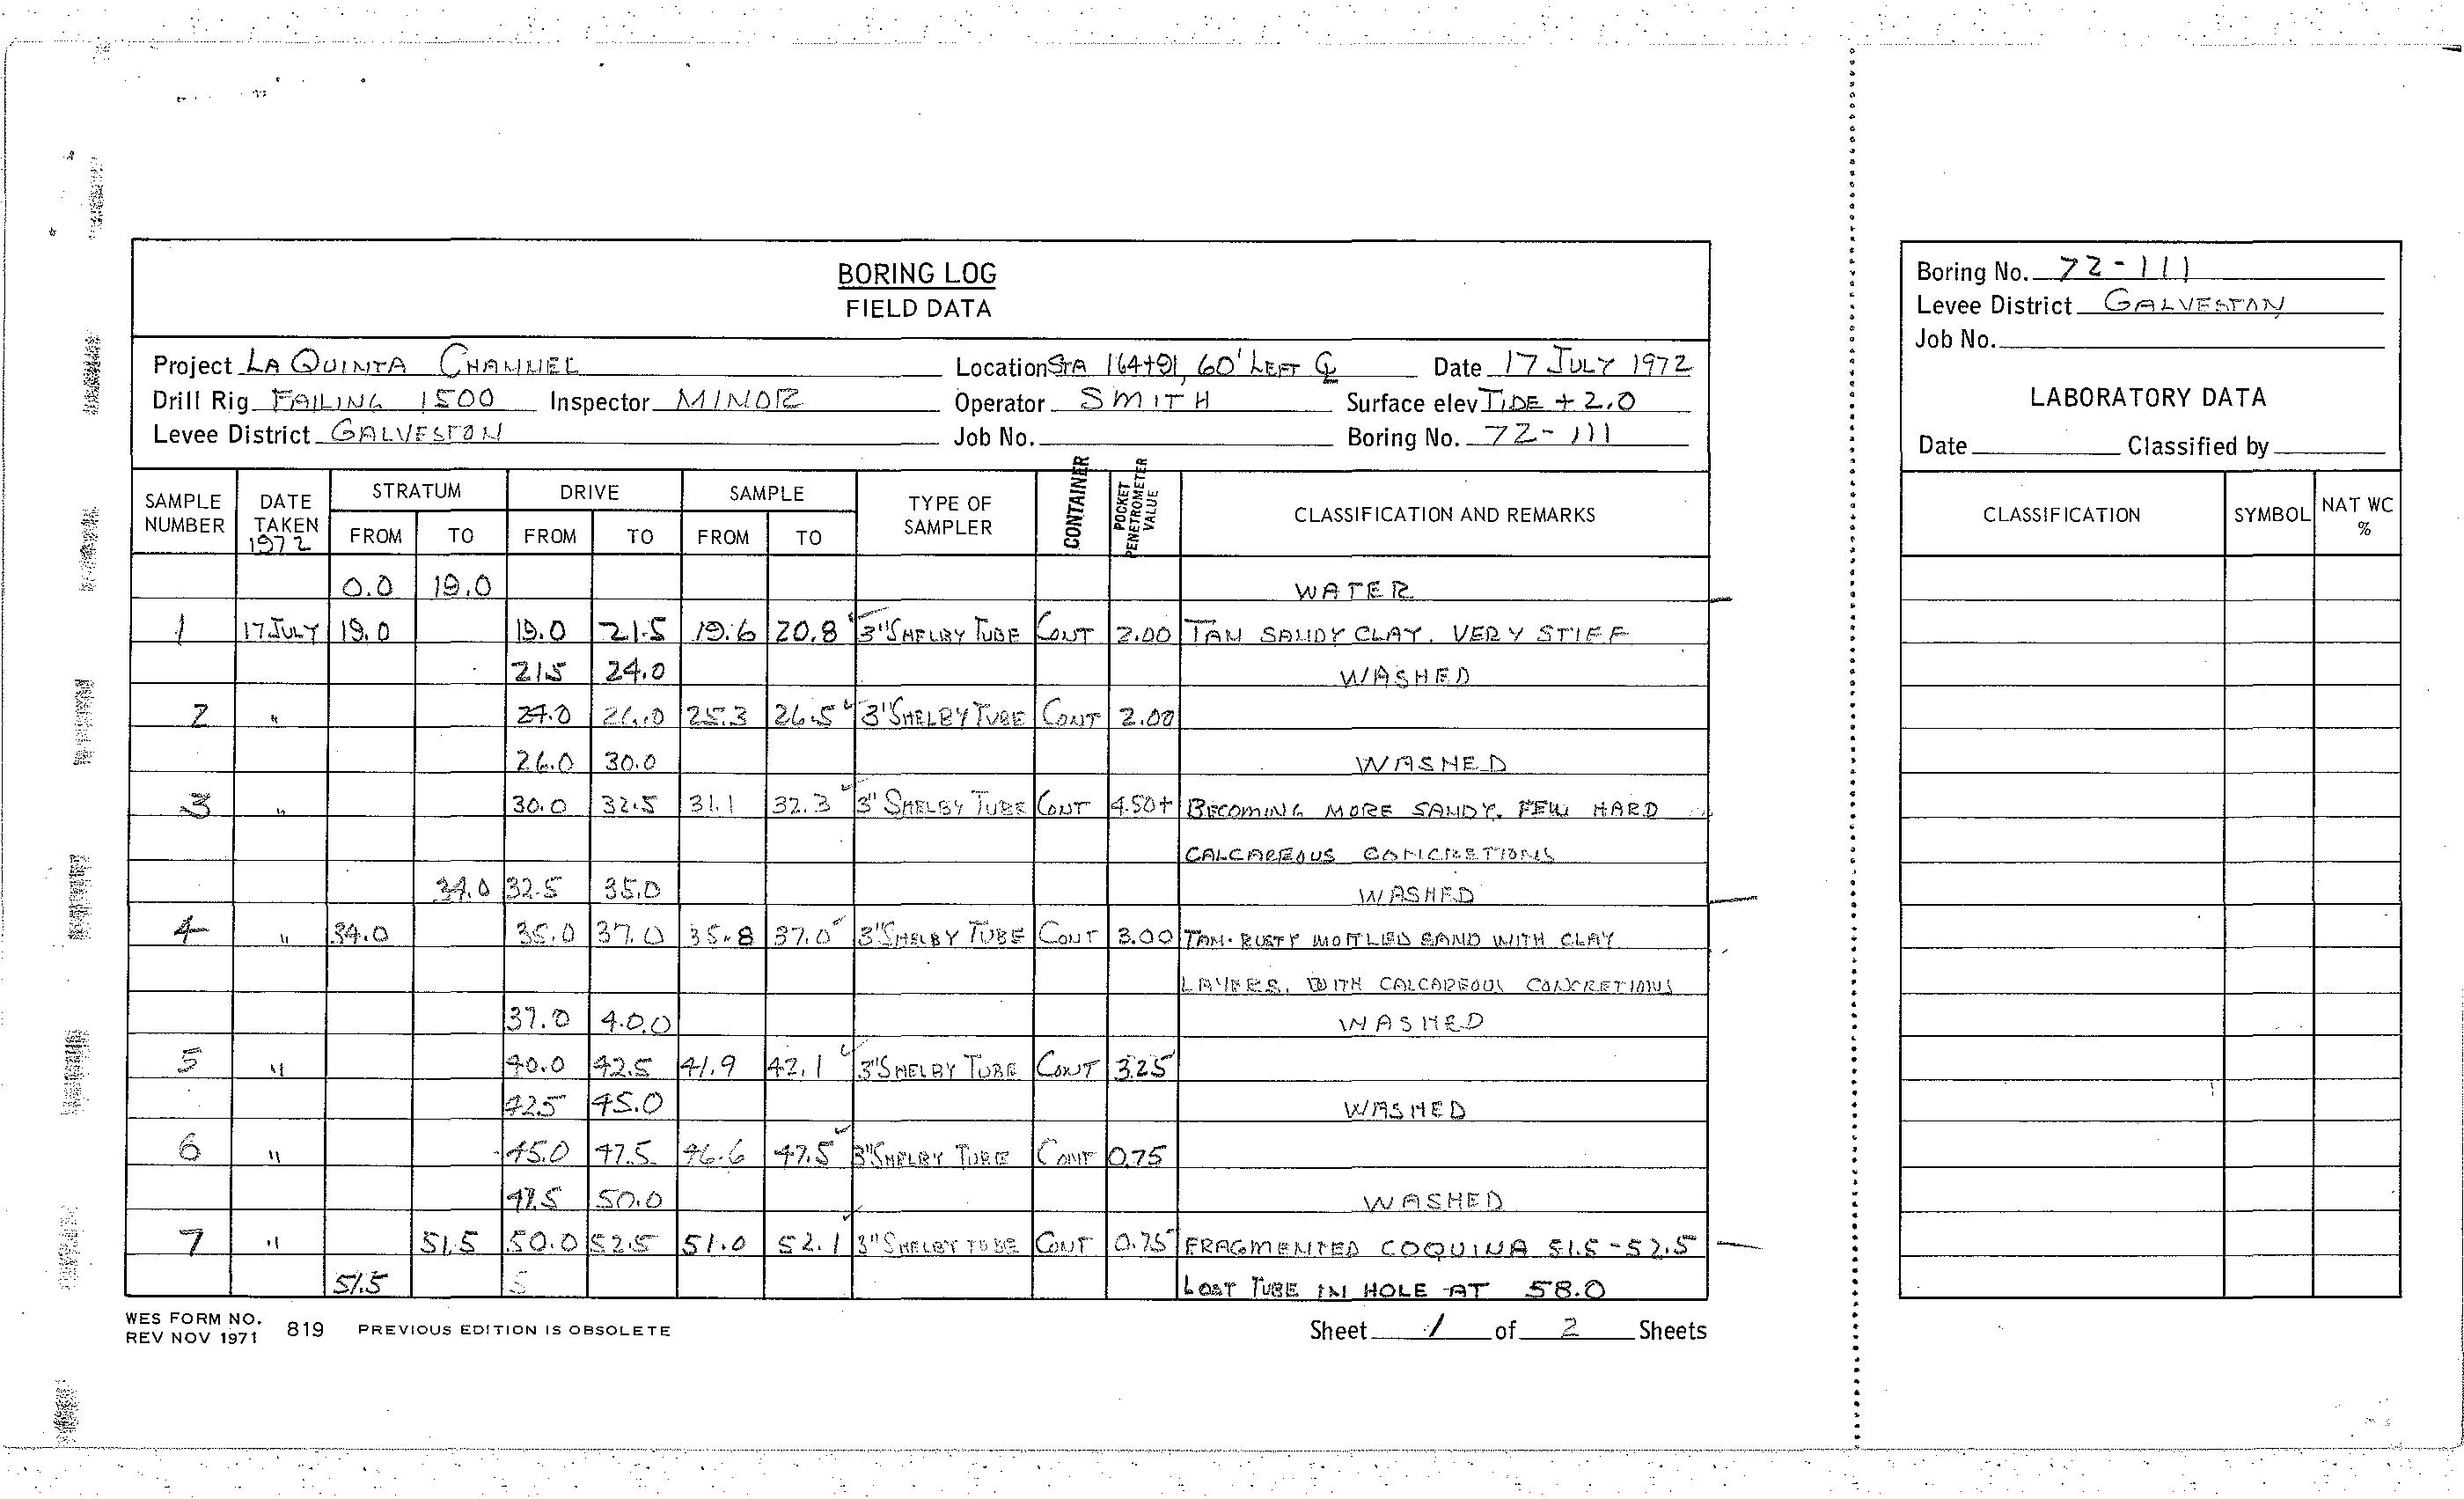 BORING LOG
FIELD DATA
Project LA QUINTA CHANNEL Location STA 164+91, 60' LEFT ℄ Date 17 JULY 1972
Drill Rig FAILING 1500 Inspector MINOR Operator SMITH Surface elev TIDE + 2.0
Levee District GALVESTON Job No. Boring No. 72-111
SAMPLE NUMBER DATE TAKEN 1972 STRATUM FROM TO DRIVE FROM TO SAMPLE FROM TO TYPE OF SAMPLER CONTAINER POCKET PENETROMETER VALUE CLASSIFICATION AND REMARKS
0.0 19.0 WATER
1 17 JULY 19.0 19.0 21.5 19.6 20.8 3" SHELBY TUBE CONT 2.00 TAN SANDY CLAY. VERY STIFF
21.5 24.0 WASHED
2 " 24.0 26.0 25.3 26.5 3" SHELBY TUBE CONT 2.00
26.0 30.0 WASHED
3 " 30.0 32.5 31.1 32.3 3" SHELBY TUBE CONT 4.50+ BECOMING MORE SANDY. FEW HARD
CALCAREOUS CONCRETIONS
34.0 32.5 35.0 WASHED
4 " 34.0 35.0 37.0 35.8 37.0 3" SHELBY TUBE CONT 3.00 TAN. RUSTY MOTTLED SAND WITH CLAY
LAYERS. WITH CALCAREOUS CONCRETIONS
37.0 40.0 WASHED
5 " 40.0 42.5 41.9 42.1 3" SHELBY TUBE CONT 3.25
42.5 45.0 WASHED
6 " 45.0 47.5 46.6 47.5 3" SHELBY TUBE CONT 0.75
47.5 50.0 WASHED
7 " 51.5 50.0 52.5 51.0 52.1 3" SHELBY TUBE CONT 0.75 FRAGMENTED COQUINA 51.5-52.5
51.5 5 LOST TUBE IN HOLE AT 58.0
WES FORM NO. 819 PREVIOUS EDITION IS OBSOLETE
REV NOV 1971
Sheet 1 of 2 Sheets
Boring No. 72-111
Levee District GALVESTON
Job No.
LABORATORY DATA
Date Classified by
CLASSIFICATION SYMBOL NAT WC %